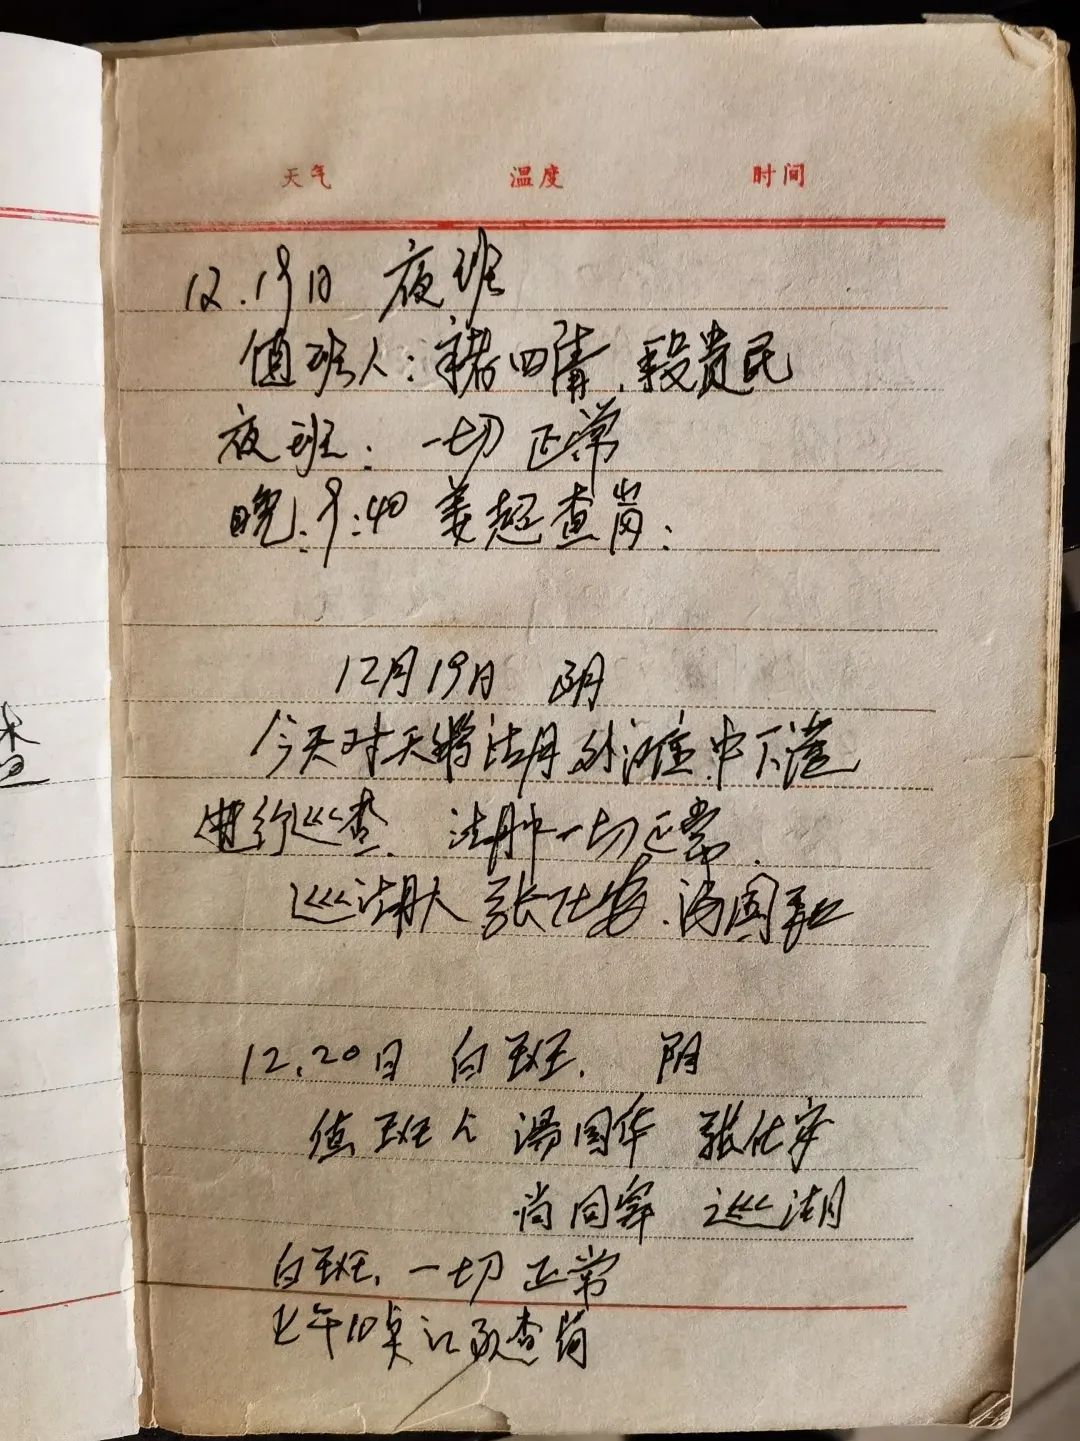 天气 温度 时间
12.19日 夜班
值班人：褚四清、段贵民
夜班：一切正常
晚：9:40 姜起查岗：
12月19日 阴
今天对天鹅湖月外滩 中下湾
进行巡查、湖中一切正常、
巡湖人 张仕安、汤国
12.20日 白班、 阴
值班人 汤国华 张仕安
尚同军 巡湖
白班、一切正常
上午10点江队查岗
查